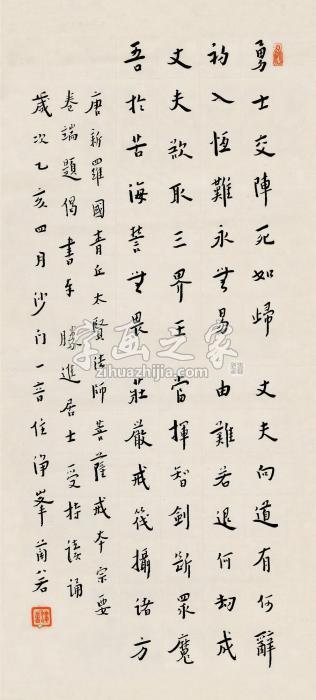 勇士交陣死如歸　丈夫向道有何辭
初入恆難永無易　由難若退何劫成
丈夫欲取三界王　當揮智劍斷眾魔
吾於苦海誓無畏　莊嚴戒筏攝诸方
唐新羅國青丘太賢法師菩薩戒本宗要
卷端題偈書奉　勝進居士受持讀誦
歲次乙亥四月沙門一音住淨峯蘭若
字画之家
zihuazhijia.com